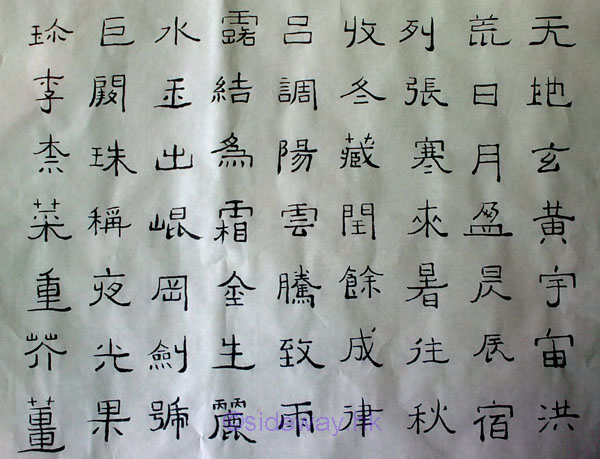 天地玄黃宇宙洪
荒日月盈昃辰宿
列張寒來暑往秋
收冬藏閏餘成律
呂調陽雲騰致雨
露結為霜金生麗
水玉出崐岡劍號
巨闕珠稱夜光果
珍李柰菜重芥薑
©sideway.hk